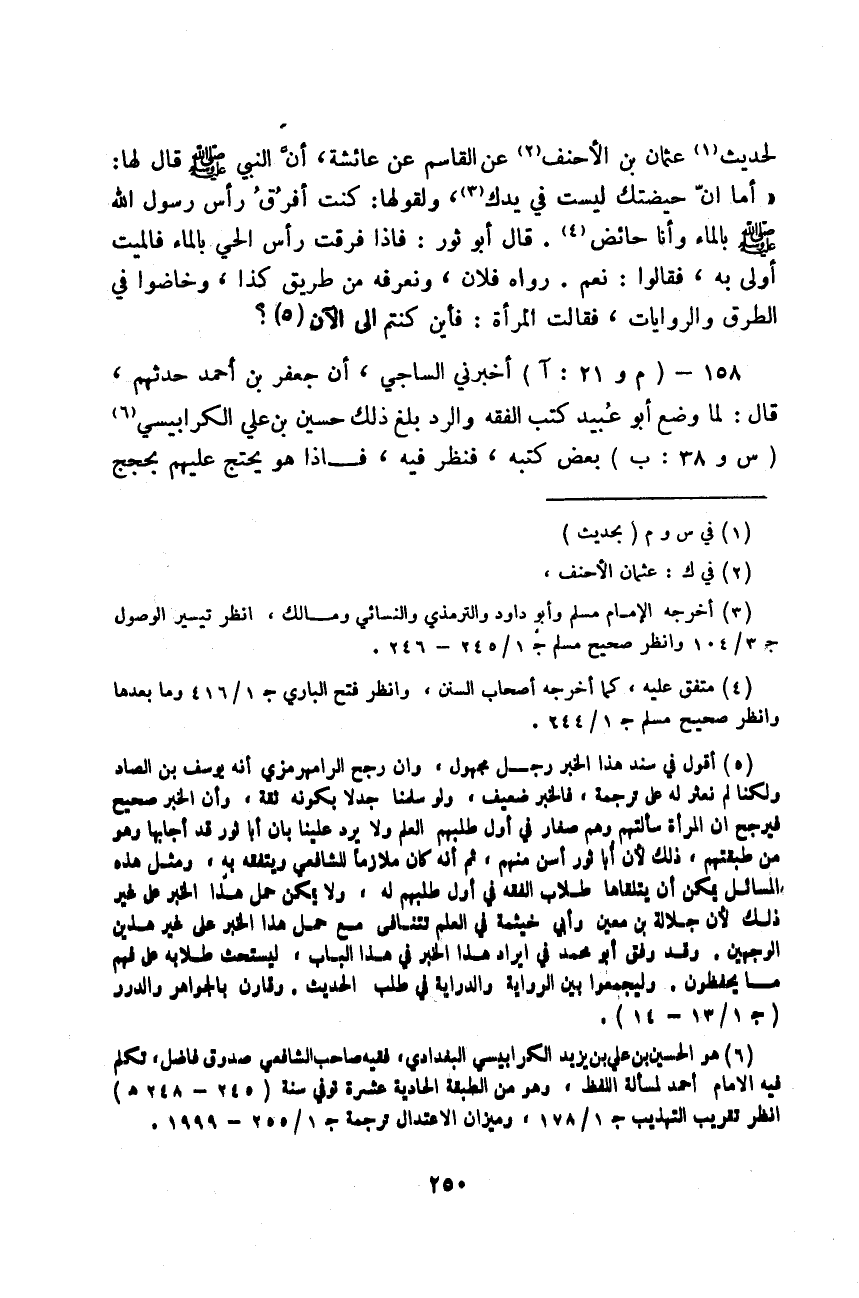 لحديث(١) عثمان بن الأحنف(٢) عن القاسم عن عائشة، أنَّ النبي ﷺ قال لها:
« أما انّ حيضتك ليست في يدك(٣)، ولقولها: كنت أفرُقُ رأس رسول الله
ﷺ بالماء وأنا حائض(٤) . قال أبو ثور : فاذا فرقت رأس الحي بالماء فالميت
أولى به ، فقالوا : نعم . رواه فلان ، ونعرفه من طريق كذا ، وخاضوا في
الطرق والروايات ، فقالت المرأة : فأين كنتم الى الآن (٥) ؟
١٥٨ – ( م و ٢١ : آ ) أخبرني الساجي ، أن جعفر بن أحمد حدثهم ،
قال : لما وضع أبو عُبيد كتب الفقه والرد بلغ ذلك حسين بن علي الكرابيسي(٦)
( س و ٣٨ : ب ) بعض كتبه ، فنظر فيه ، فـــاذا هو يحتج عليهم بحجج
(١) في س و م ( بحديث )
(٢) في ك : عثمان الأحنف ،
(٣) أخرجه الإمـام مسلم وأبو داود والترمذي والنسائي ومـــالك ، انظر تيسير الوصول
جـ ٣/ ١٠٤ وانظر صحيح مسلم جـ ١/ ٢٤٥ – ٢٤٦ .
(٤) متفق عليه ، كما أخرجه أصحاب السنن ، وانظر فتح الباري جـ ١/ ٤١٦ وما بعدها
وانظر صحيح مسلم جـ ١/ ٢٤٤ .
(٥) أقول في سند هذا الخبر رجـــل مجهول ، وان رجح الرامهرمزي أنه يوسف بن الصاد
ولكنا لم نعثر له على ترجمة ، فالخبر ضعيف ، ولو سلمنا جدلا بكونه ثقة ، وأن الخبر صحيح
فيرجح ان المرأة سألتهم وهم صغار في أول طلبهم العلم ولا يرد علينا بان أبا ثور قد أجابها وهو
من طبقتهم ، ذلك لأن أبا ثور أسن منهم ، ثم أنه كان ملازماً للشافعي ويتفقه به ، ومثـل هذه
المسائـل يمكن أن يتلقاها طـلاب الفقه في أول طلبهم له ، ولا يمكن حمل هـذا الخبر على غير
ذلـك لأن جـلالة بن معين وأبي خيثمة في العلم تتنـافى مـع حمـل هذا الخبر على غير هـذين
الوجهين . وقـد وفق أبو محمد في ايراد هـذا الخبر في هـذا البـاب ، ليستحث طـلابه على فهم
مـا يحفظون . وليجمعوا بين الرواية والدراية في طلب الحديث . وقارن بالجواهر والدرر
( جـ ١/ ١٣ – ١٤ ) .
(٦) هو الحسين بن علي بن يزيد الكرابيسي البغدادي، فقيه صاحب الشافعي صدوق فاضل، تكلم
فيه الامام أحمد لمسألة اللفظ ، وهو من الطبقة الحادية عشرة توفي سنة ( ٢٤٥ – ٢٤٨ هـ )
انظر تقريب التهذيب جـ ١/ ١٧٨ ، وميزان الاعتدال ترجمة جـ ١/ ٢٥٥ – ١٩٩٩ .
٢٥٠